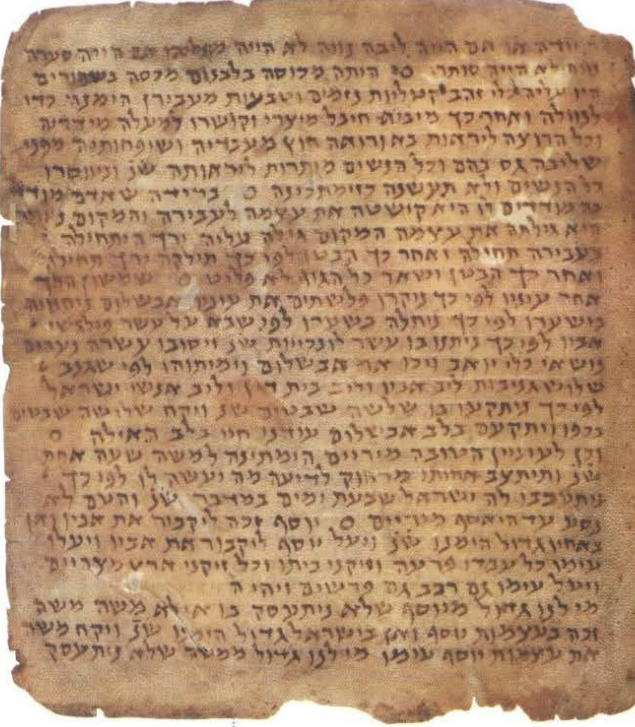 יודה או אם היה ליבה נווה לא היה מגלהו אם היה סערה
נווה לא היה סותרו ס היתה מכוסה בלבנים מכסה בשחורים
היו עליה כלי זהב קטליות נזמים וטבעות מעבירן הימנה כדי
לנוולה ואחר כך מיבית חיבל מיצרי וקושרו למעלה מידדיה
וכל הרוצה ליראות בא ורואה חוץ מעבדיה ושופחותיה מפני
שליבה גס בהם וכל הנשים מותרות ליראותה שנ׳ וניווסרו
כל הנשים ולא תעשנה כזימתכינה ס במידה שאדם מודד
בה מודדים לו היא קישטה את עצמה לעבירה והמקום ניוולה
היא גילתה את עצמה המקום גילה עליה ירך היתחילה
בעבירה תחילה ואחר כך הבטן לפי כך תילקה ירך תחילה
ואחר כך הבטן ושאר כל הגוף לא פליט ס שמשון הלך
אחר עיניו לפי כך ניקרו פלשתים את עיניו אבשלום
בישערו לפי כך ניתלה בשערו לפי שבא על עשר פילגשי
אביו לפי כך ניתנו בו עשר לונכיות שנ׳ ויסובו עשרה נערים
נושאי כלי יואב ויכו את אבשלום וימיתוהו לפי שגנב
שלוש גניבות ליב אביו וליב בית דין וליב אנשי ישראל
לפי כך ניתקעו בו שלשה שבטים שנ׳ ויקח שלושה שבטים
בכפו ויתקעם בלב אבשלום עודנו חי בלב האילה ס
וכן לעיניין הטובה מיריים הימתינה למשה שעה אחת
שנ׳ ותיתצב אחותו מרחוק לדיעה מה יעשה לו לפי כך
ניתעכבו לה ישראל שבעת ימים במדבר שנ׳ והעם לא
נסע עד היאסף מיריים ס יוסף זכה ליקבור את אביו ואין
באחיו גדול הימנו שנ׳ ויעל יוסף ליקבור את אביו ויעלו
עימו כל עבדי פרעה וזיקני ביתו וכל זיקני ארץ מצריים
ויעל עימו גם רכב גם פרשים ויהי ה
מי לנו גדול מיוסף שלא ניתעסק בו אילא משה משה
זכה בעצמות יוסף ואין בישראל גדול הימנו שנ׳ ויקח משה
את עצמות יוסף עימו מי לנו גדול ממשה שלא ניתעסק